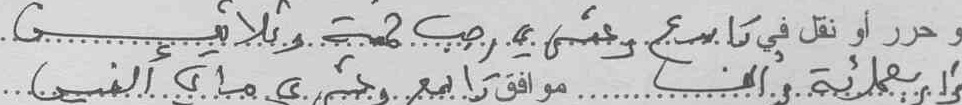 و حرر أو نقل في تاسع وعشري رجب خمسة وثلاثين
وأربعمائة وألف موافق تاسع وعشري ماي ألفين